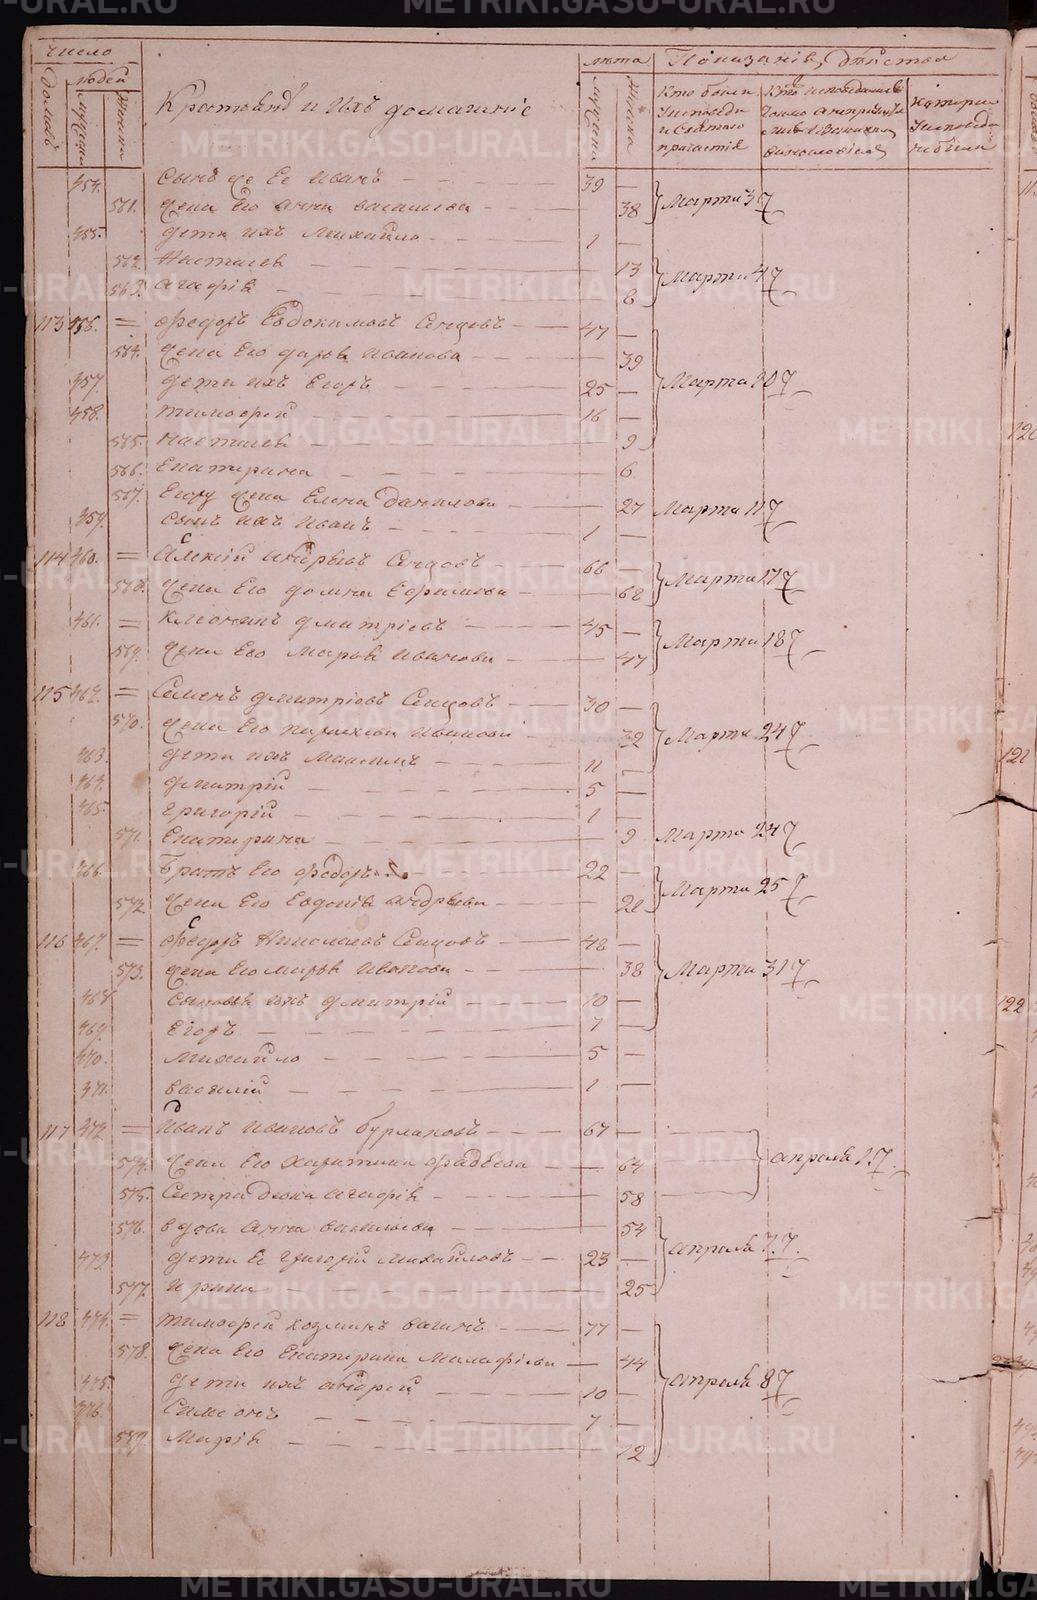 METRIKI.GASO-URAL.RU
число лѣта Показаніе дѣйства
домовъ людей мужеска женска мужска женска
Крестьянѣ и ихъ домашніе
Кто были у исповеди и святаго причастія
Кто исповедались токмо а непричаст.
которые у исповеди небыли
454. сынъ ее Иванъ 39 —
561. жена Его Анна васильева — 38 Марта 3 7
455. дети ихъ Михайло 1 —
562. Настасья — 13 Марта 4 7
563. агафія — 6
113 456. = Федоръ Евдокимовъ Сенцовъ 47 —
564. жена Его дарья Иванова — 39
457. дети ихъ Егоръ 25 — Марта 10 7
458. тимофей 16 —
565. настасья — 9
566. Екатерина — 6
567. Егору жена Елена данилова — 27 Марта 11 7
459. сынъ ихъ Иванъ 1 —
114 460. = Алексій андрѣевъ Сенцовъ 66 —
568. жена Его домна Ефимова — 68 Марта 17 7
461. = дмитріевъ 45 —
569. жена Его Марья Иванова — 47 Марта 18 7
115 462. = Семенъ дмитріевъ Сенцовъ 30 —
570. жена Его параскева Иванова — 32 Марта 24 7
463. дети ихъ Максимъ 11 —
464. дмитрій 5 —
465. григорій 1 —
571. Екатерина — 9 Марта 24 7
466. братъ Его федоръ 22 —
572. жена Его Евдокія андрѣева — 20 Марта 25 7
116 467. = Федоръ Николаевъ Сенцовъ 48 —
573. жена Его марья Иванова — 38 Марта 31 7
468. сыновья ихъ дмитрій 10 —
469. Егоръ 7 —
470. михайло 5 —
471. василій 1 —
117 472. = Иванъ Ивановъ бурлаковъ 67 —
574. жена Его харитина фадѣева — 64 апреля 1. 7.
575. Сестра девка агафія — 58
576. вдова анна васильева — 54
473. дети Ее григорій михайловъ 23 — апреля 7. 7.
577. Ирина — 25
118 474. = тимофей козминъ вагинъ 77 —
578. жена Его Екатерина — 44
475. дети ихъ андрей 10 — апреля 8 7
476. Симеонъ 7 —
579. Марія — 12